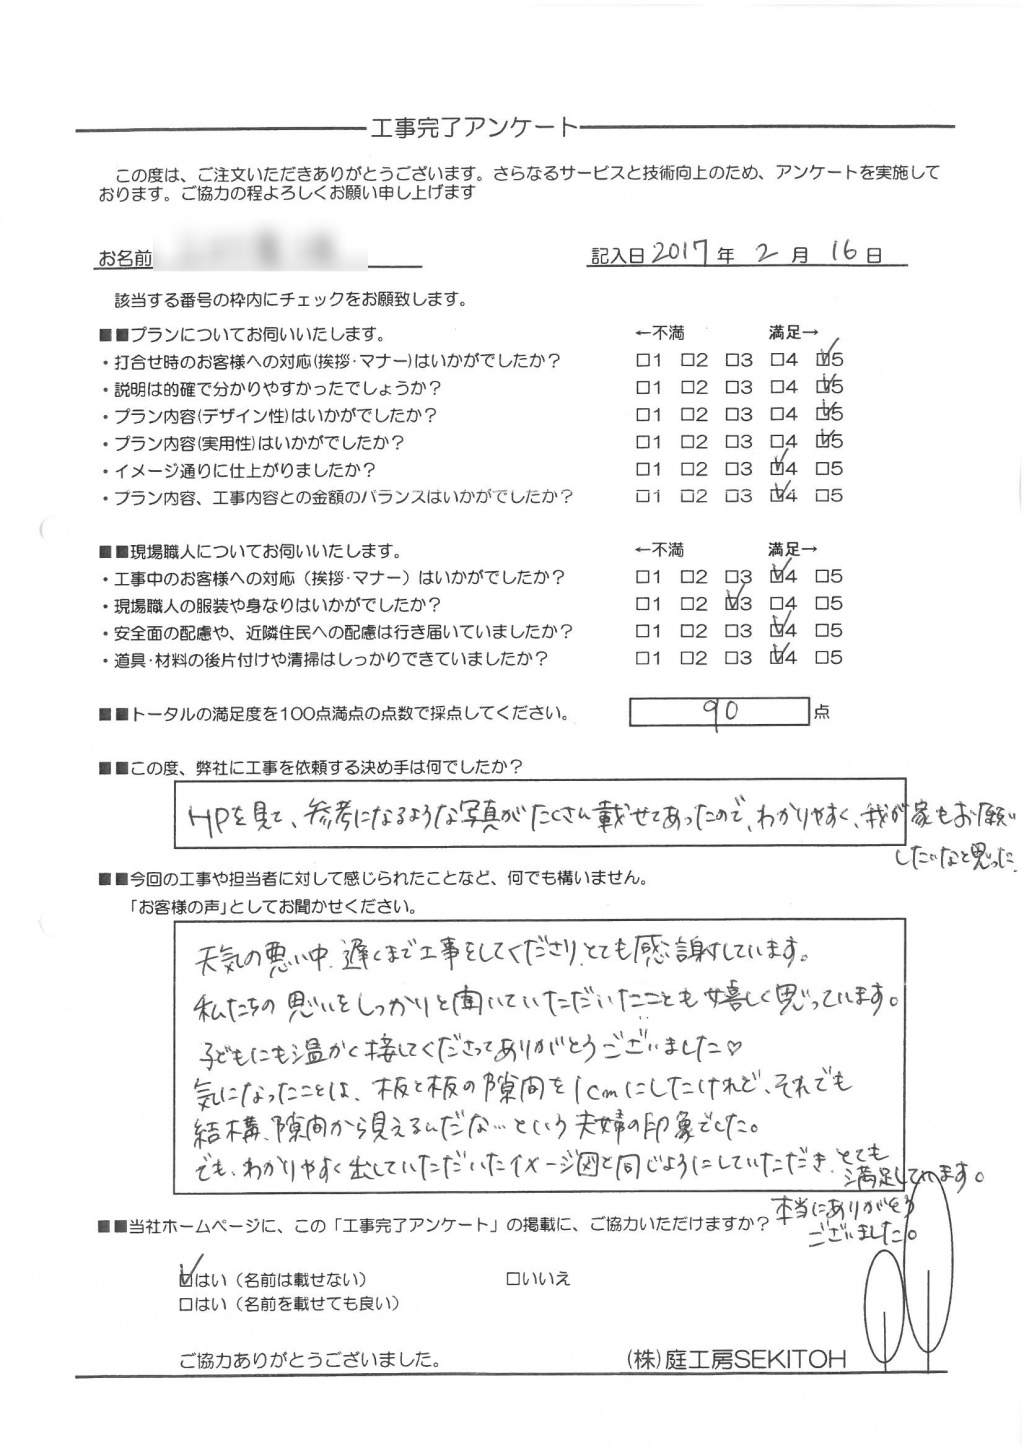 工事完了アンケート
この度は、ご注文いただきありがとうございます。さらなるサービスと技術向上のため、アンケートを実施して
おります。ご協力の程よろしくお願い申し上げます
お名前 記入日 2017 年 2 月 16 日
該当する番号の枠内にチェックをお願致します。
■■プランについてお伺いいたします。 ←不満 満足→
・打合せ時のお客様への対応(挨拶・マナー)はいかがでしたか? □1 □2 □3 □4 ☑5
・説明は的確で分かりやすかったでしょうか? □1 □2 □3 □4 ☑5
・プラン内容(デザイン性)はいかがでしたか? □1 □2 □3 □4 ☑5
・プラン内容(実用性)はいかがでしたか? □1 □2 □3 □4 ☑5
・イメージ通りに仕上がりましたか? □1 □2 □3 ☑4 □5
・プラン内容、工事内容との金額のバランスはいかがでしたか? □1 □2 □3 ☑4 □5
■■現場職人についてお伺いいたします。 ←不満 満足→
・工事中のお客様への対応（挨拶・マナー）はいかがでしたか? □1 □2 □3 ☑4 □5
・現場職人の服装や身なりはいかがでしたか? □1 □2 ☑3 □4 □5
・安全面の配慮や、近隣住民への配慮は行き届いていましたか? □1 □2 □3 ☑4 □5
・道具・材料の後片付けや清掃はしっかりできていましたか? □1 □2 □3 ☑4 □5
■■トータルの満足度を100点満点の点数で採点してください。 90 点
■■この度、弊社に工事を依頼する決め手は何でしたか?
HPを見て、参考になるような写真がたくさん載せてあったので、わかりやすく、我が家もお願い
したいなと思った。
■■今回の工事や担当者に対して感じられたことなど、何でも構いません。
「お客様の声」としてお聞かせください。
天気の悪い中、遅くまで工事をしてくださり、とても感謝しています。
私たちの思いをしっかりと聞いていただいたことも嬉しく思っています。
子どもにも温かく接してくださってありがとうございました♡
気になったことは、板と板の隙間を1cmにしたけれど、それでも
結構、隙間から見えるんだな…という夫婦の印象でした。
でも、わかりやすく出していただいたイメージ図と同じようにしていただき、とても
満足しています。
本当にありがとう
ございました。
■■当社ホームページに、この「工事完了アンケート」の掲載に、ご協力いただけますか?
☑はい（名前は載せない） □いいえ
□はい（名前を載せても良い）
ご協力ありがとうございました。 (株)庭工房SEKITOH